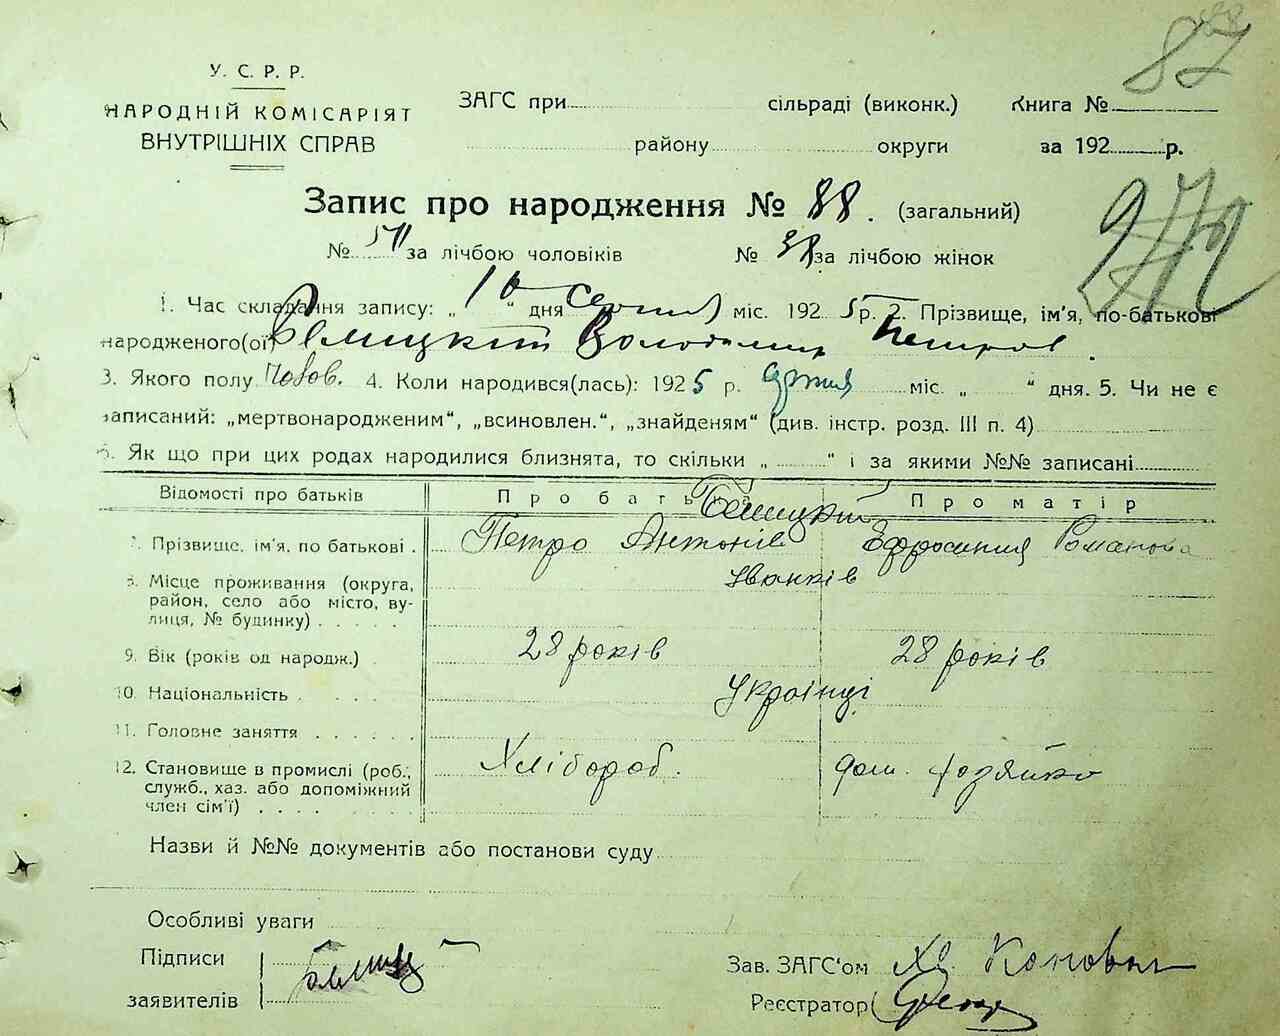 87
У. С. Р. Р.
НАРОДНІЙ КОМІСАРІЯТ
ВНУТРІШНІХ СПРАВ
ЗАГС при сільраді (виконк.) Книга №
району округи за 192 р.
Запис про народження № 88. (загальний)
№ за лічбою чоловіків № 38 за лічбою жінок
1. Час складання запису: „ 10 “ дня серпня міс. 1925 р. 2. Прізвище, ім'я, по-батькові
народженого(ої) Володимир Петров.
3. Якого полу 4. Коли народився(лась): 1925 р. міс. „ “ дня. 5. Чи не є
записаний: „мертвонародженим“, „всиновлен.“, „знайденям“ (див. інстр. розд. III п. 4)
6. Як що при цих родах народилися близнята, то скільки „ “ і за якими №№ записані
Відомості про батьків Про батька Про матір
7. Прізвище, ім'я, по батькові . Петро Антонів Єфросиния Романова
8. Місце проживання (округа, Іванків
район, село або місто, ву-
лиця, № будинку) . . . . .
9. Вік (років од народж.) . 28 років 28 років
10. Національність . . . . . Українці
11. Головне заняття . . . . . .
12. Становище в промислі (роб., Хлібороб. дом. хозяйка
служб., хаз. або допоміжний
член сім'ї) . . . .
Назви й №№ документів або постанови суду
Особливі уваги
Підписи
заявителів
Зав. ЗАГС'ом
Реєстратор